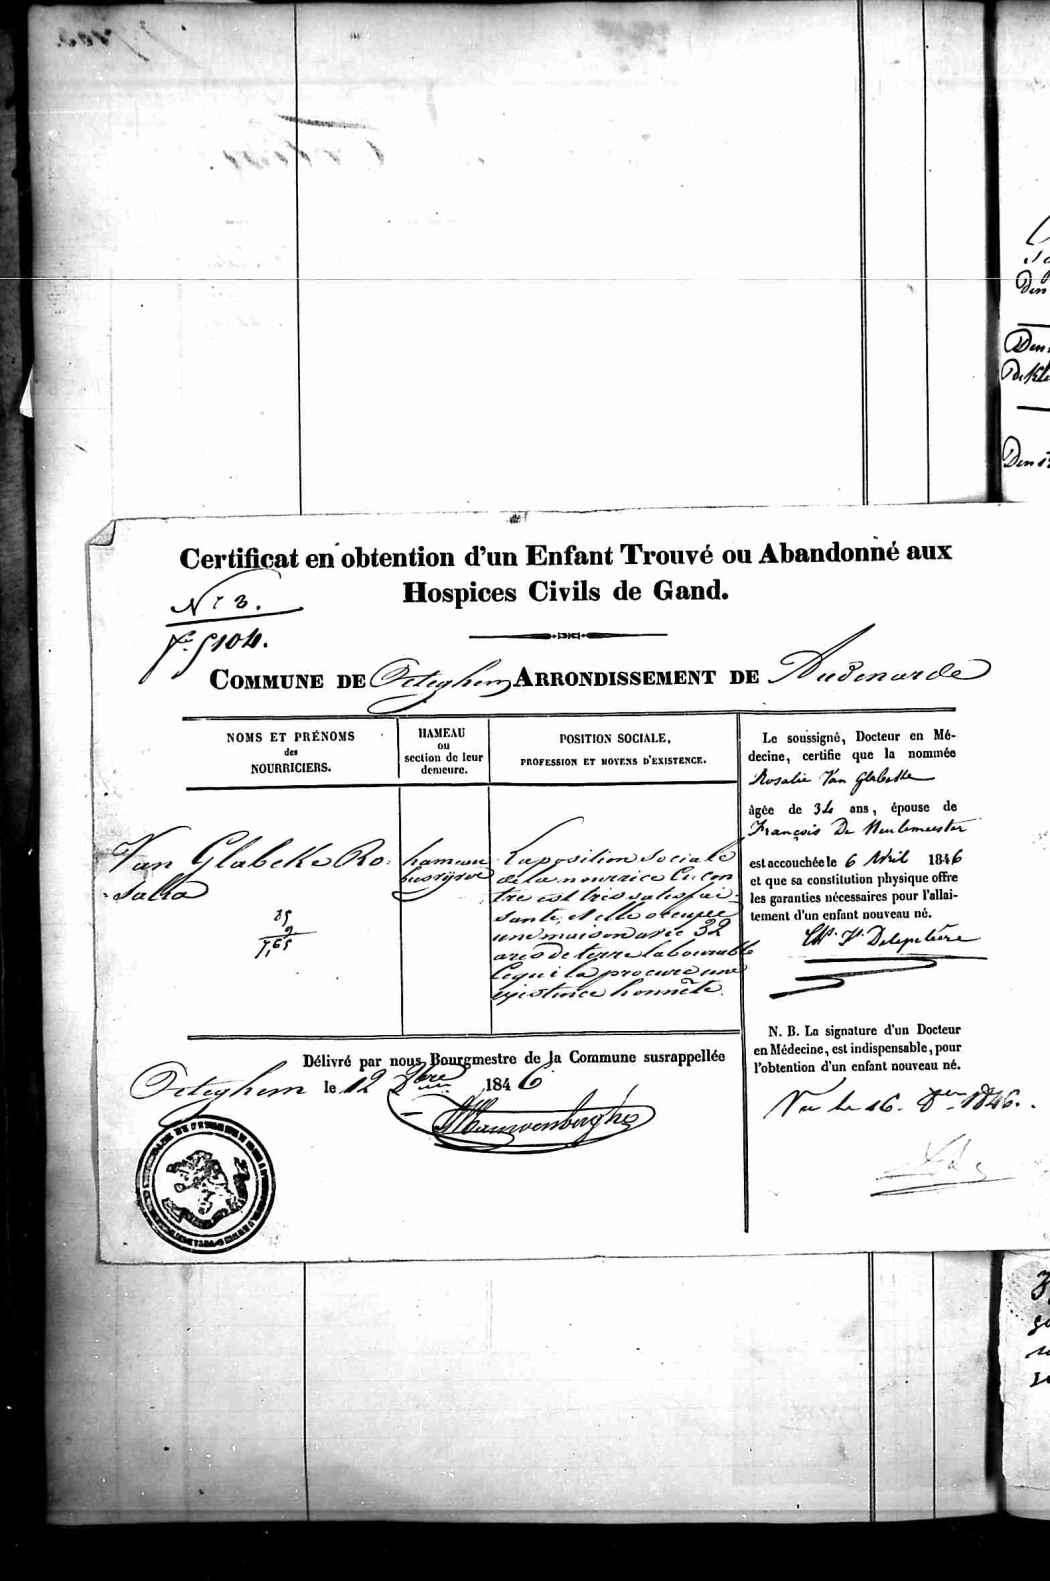 Certificat en obtention d'un Enfant Trouvé ou Abandonné aux
Hospices Civils de Gand.
N° 3.
5104.
COMMUNE DE Peteghem ARRONDISSEMENT DE Audenarde
NOMS ET PRÉNOMS
des
NOURRICIERS.
HAMEAU
ou
section de leur
demeure.
POSITION SOCIALE,
PROFESSION ET MOYENS D'EXISTENCE.
Van Glabeke Ro-
salia
25
9
7,65
hameau
La position sociale
de la nourrice ci con
tre est très satisfai-
sante, et elle occupe
une maison avec 32
ares de terre labourable
ce qui la procure une
existence honnête.
Le soussigné, Docteur en Mé-
decine, certifie que la nommée
Rosalie Van Glabekke
âgée de 34 ans, épouse de
François De Meulemeester
est accouchée le 6 Avril 1846
et que sa constitution physique offre
les garanties nécessaires pour l'allai-
tement d'un enfant nouveau né.
Delepelière
N. B. La signature d'un Docteur
en Médecine, est indispensable, pour
l'obtention d'un enfant nouveau né.
Vu le 16. 8bre 1846.
Délivré par nous Bourgmestre de la Commune susrappellée
Peteghem le 12 8bre 1846